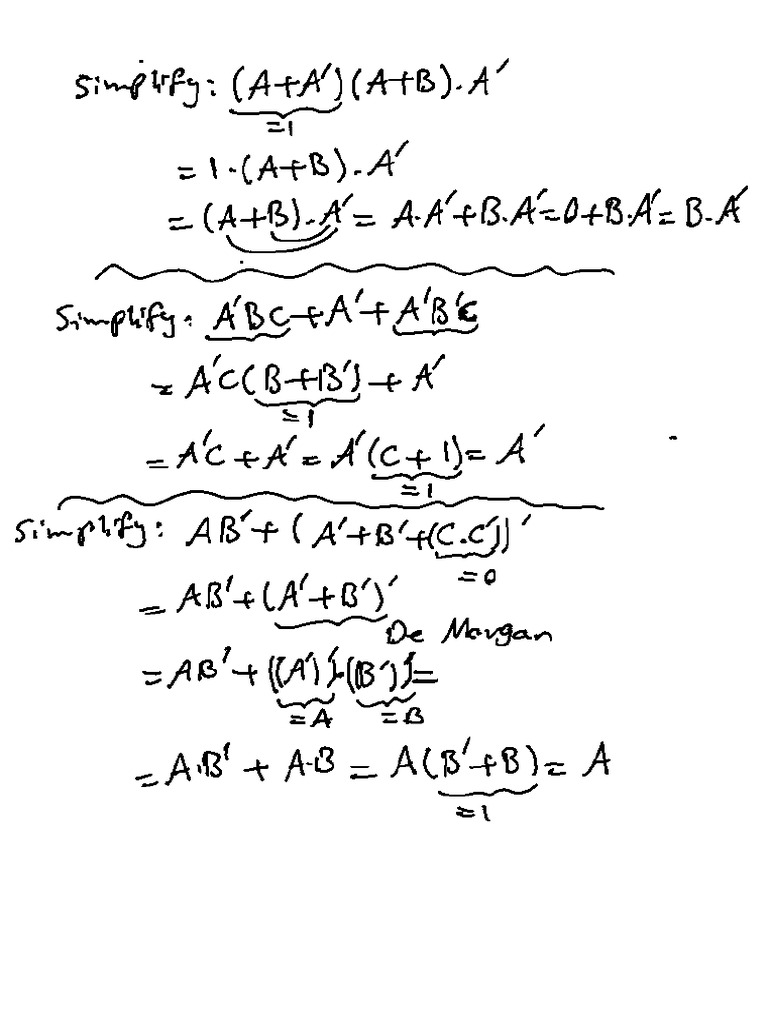 Simplify: (A+A')(A+B).A'
=1
= 1.(A+B).A'
= (A+B).A' = A.A'+B.A'=0+B.A'= B.A'
Simplify: A'BC+A'+A'B'C
= A'C(B+B')+A'
=1
= A'C+A' = A'(C+1)= A'
=1
Simplify: AB'+(A'+B'+(C.C'))'
=0
= AB'+(A'+B')'
De Morgan
= AB'+((A')'.(B')')=
=A =B
= A.B' + A.B = A(B'+B)= A
=1